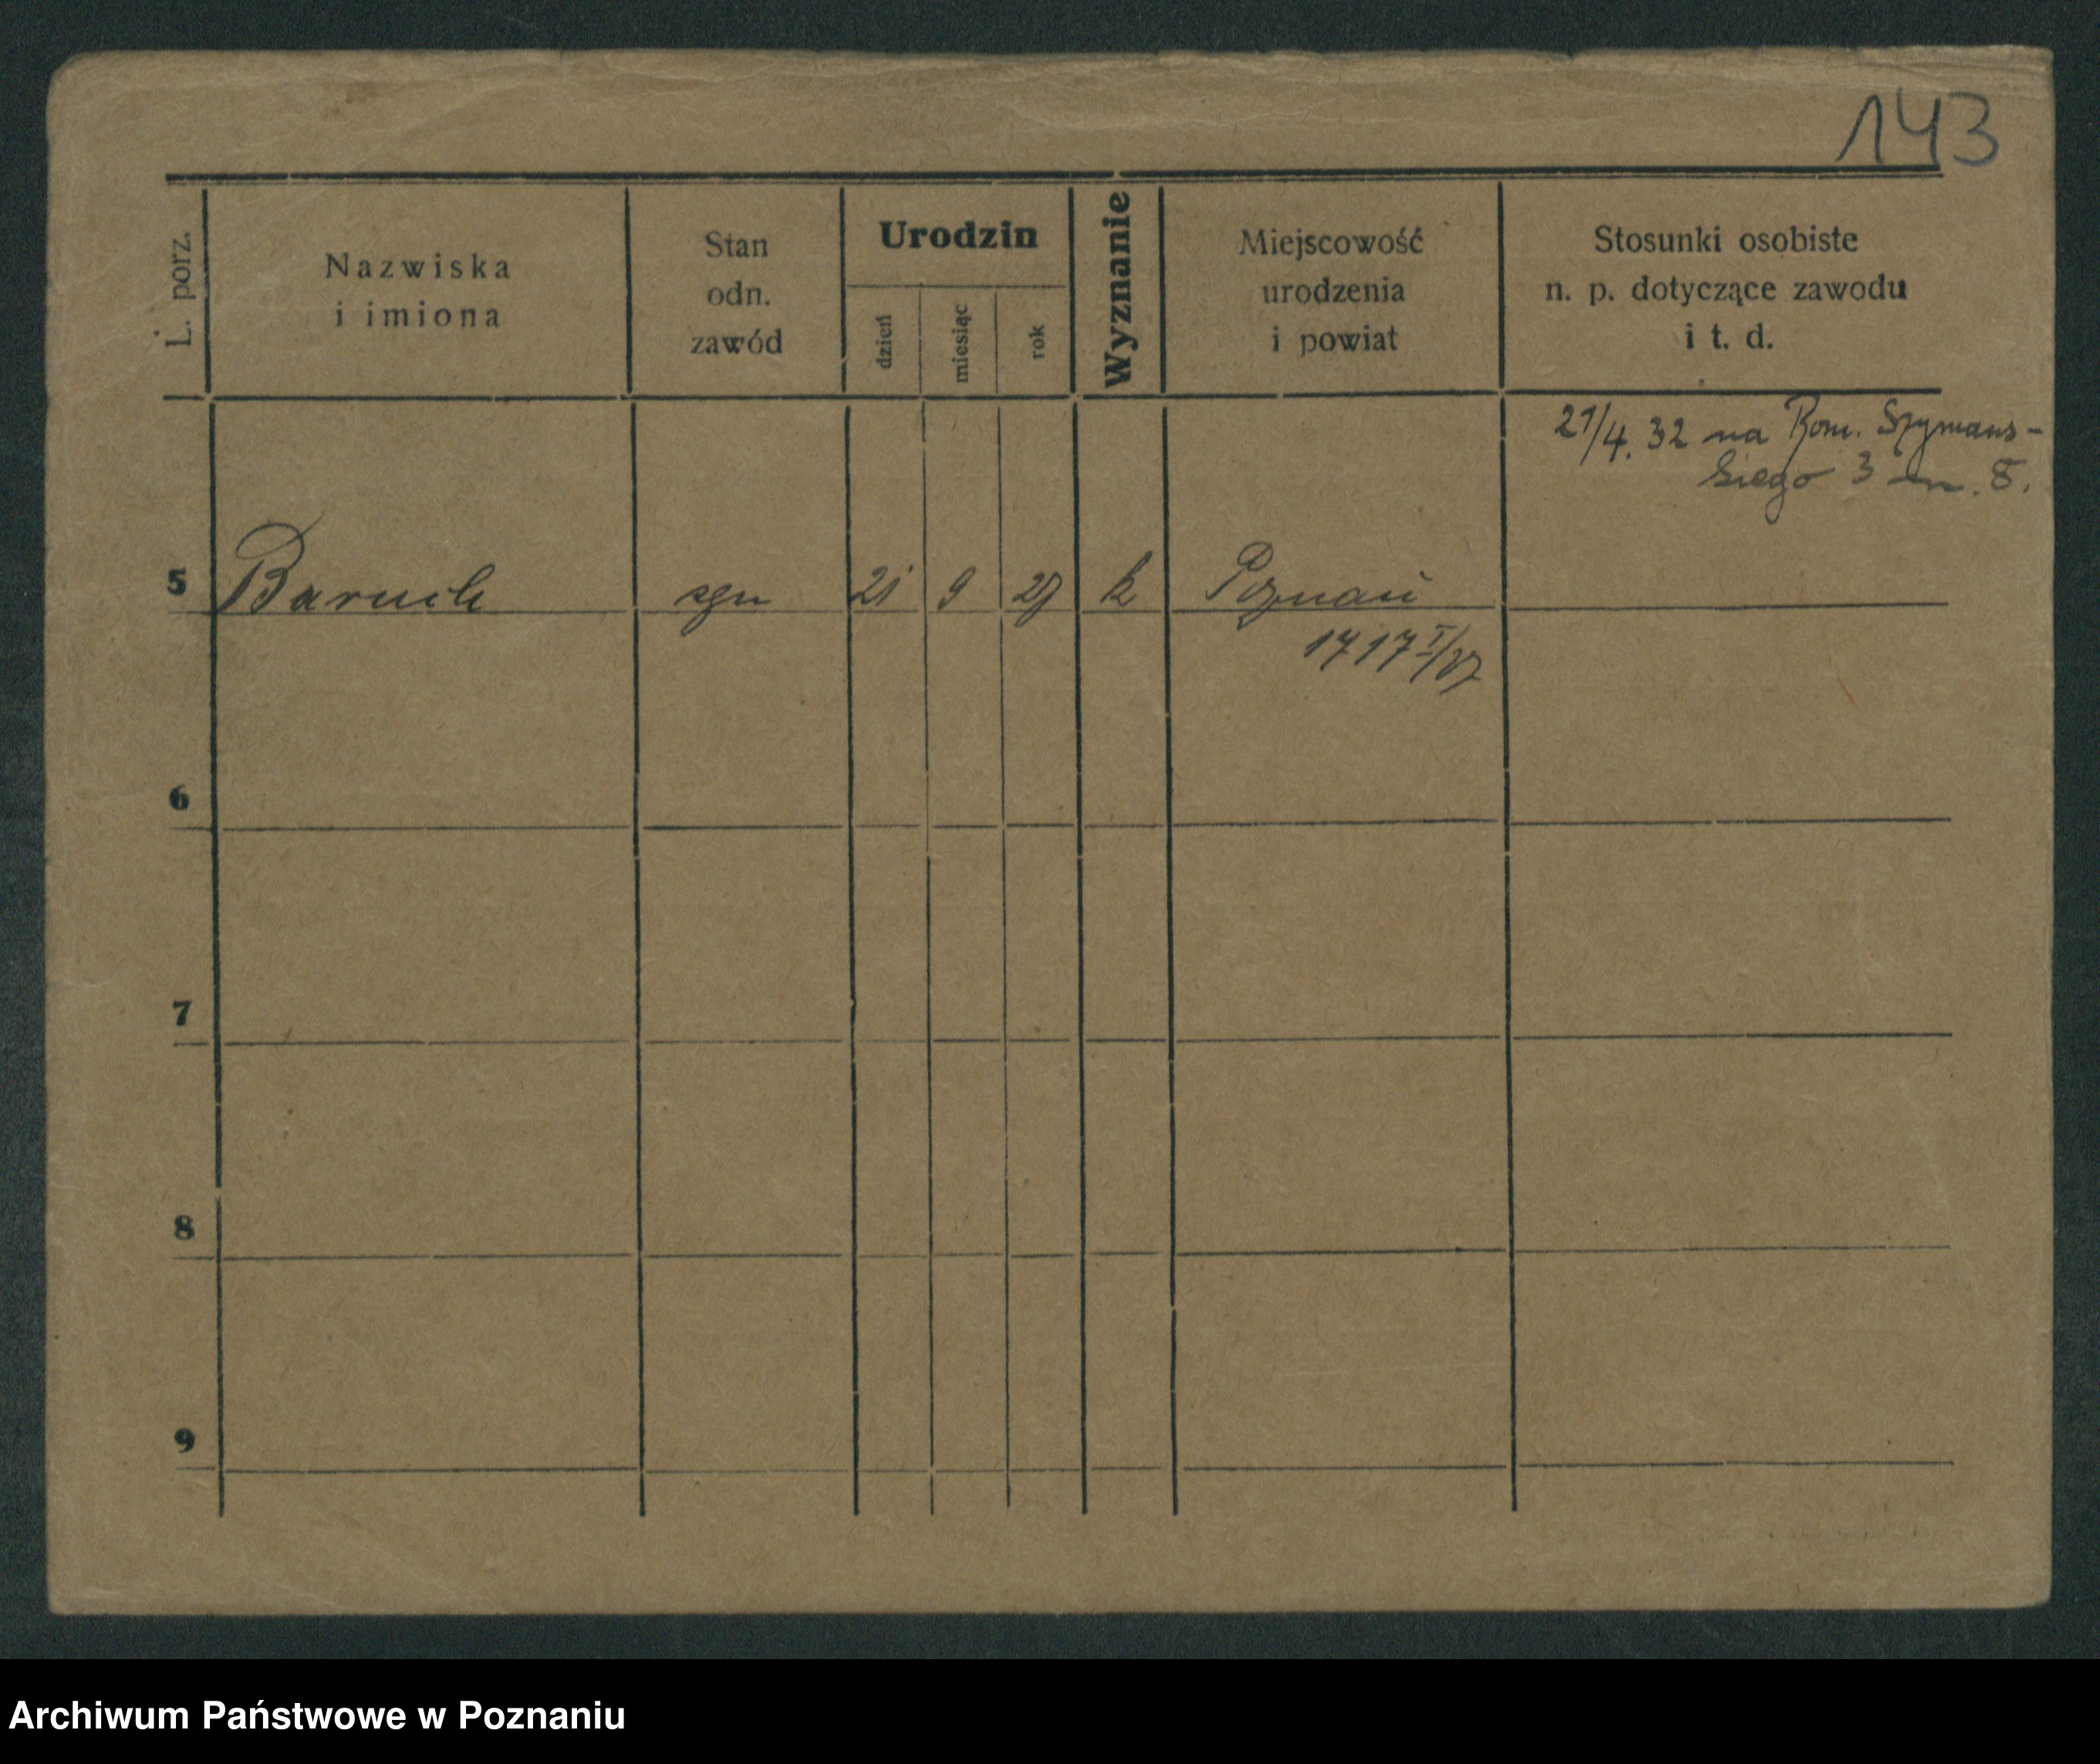 143
L. porz.
Nazwiska
i imiona
Stan
odn.
zawód
Urodzin
dzień
miesiąc
rok
Wyznanie
Miejscowość
urodzenia
i powiat
Stosunki osobiste
n. p. dotyczące zawodu
i t. d.
21/4. 32 na Rom. Szymans-
kiego 3 m. 8.
5 Baruch syn 21 9 27 k Poznań
1717 I/27
6
7
8
9
Archiwum Państwowe w Poznaniu